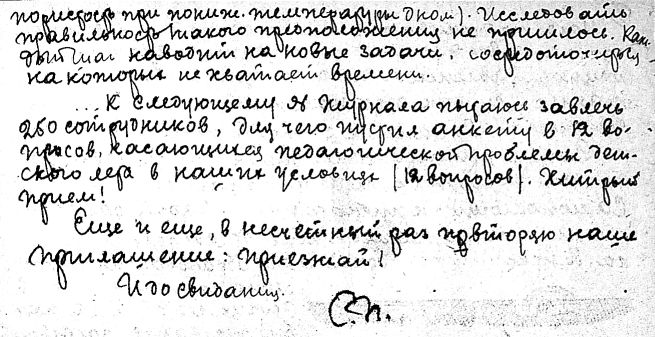 пористость при пониж. температуры дном). Исследовать
правильность такого предположения не пришлось. Каж-
дый шаг наводит на новые задачи, сосредоточ
на которых не хватает времени.
... К следующему № журнала пытаюсь завлечь
250 сотрудников, для чего пустил анкету в 12 во-
просов, касающихся педагогической проблемы дет-
ского лера в наших условиях (12 вопросов). Хитрый
прием!
Еще и еще, в несчетный раз повторяю наше
приглашение: приезжай!
И до свидания.
С.П.